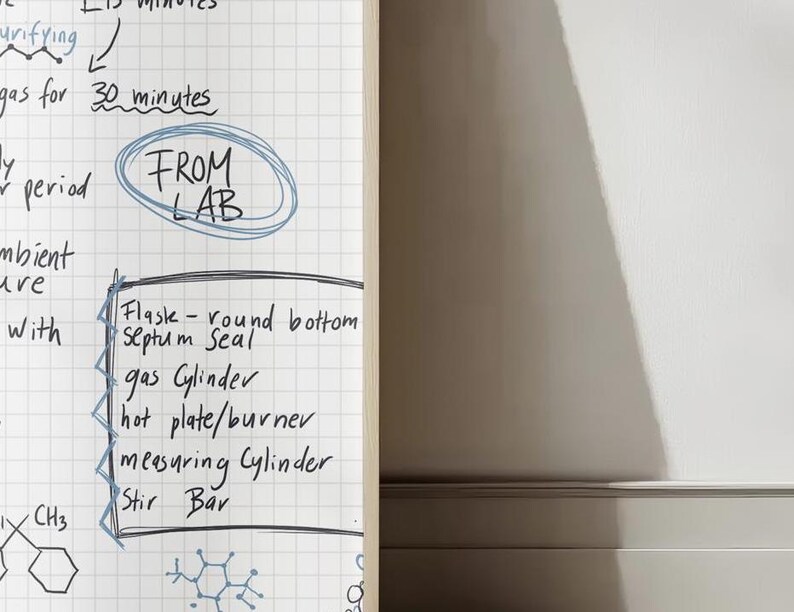 minutes
urifying
gas for 30 minutes
FROM
LAB
period
mbient
ure
with
Flask - round bottom
septum seal
gas Cylinder
hot plate/burner
measuring Cylinder
Stir Bar
CH3